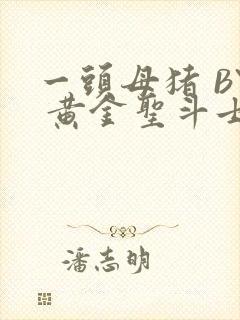 一頭母猪 BY
黄金聖斗士
潘志明